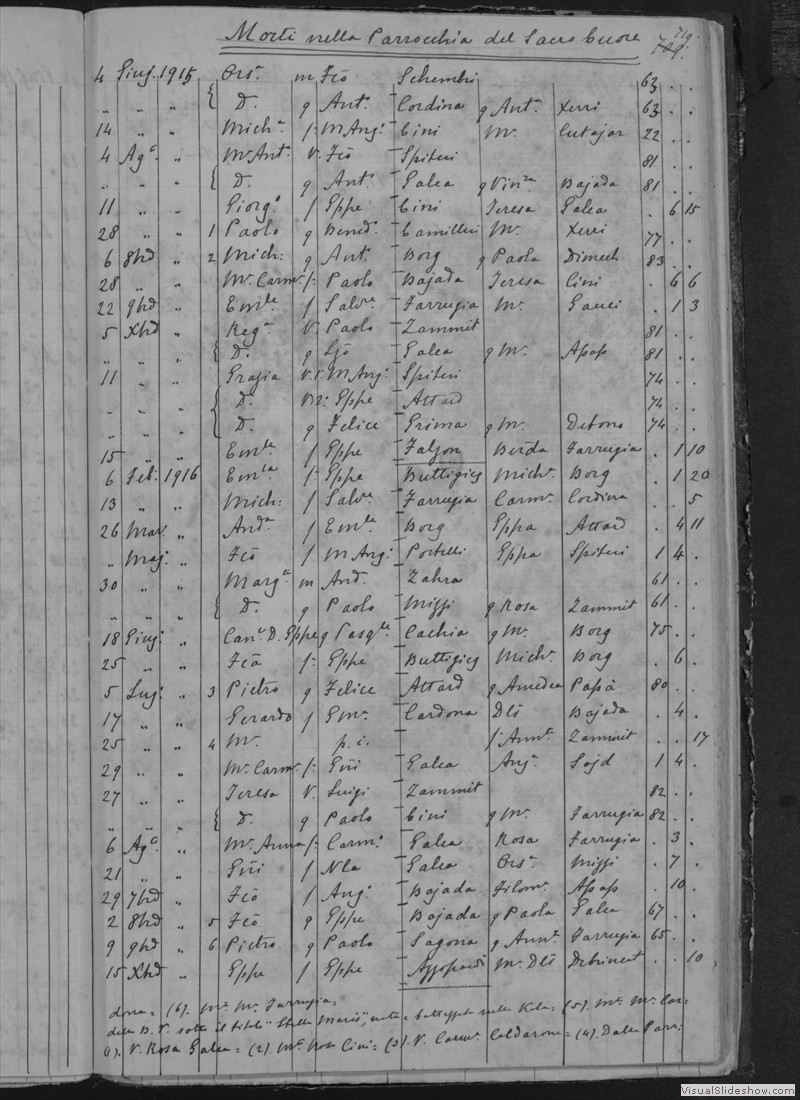 Morti nella Parrocchia del Sacro Cuore 719.
4 Giug. 1915 Ors.ᵃ m Fco Schembri 63 . .
„ „ „ { D. q Ant.º Cordina q Ant.ᵃ Xerri 63 . .
14 „ „ Mich.ᵃ f. M Ang.º Cini M.ᵃ Cutajar 22 . .
4 Ag.º „ M.ᵃ Ant.ᵃ V. Fco Spiteri 81 . .
„ „ „ { D. q Ant.º Galea q Vin.ᶻᵃ Bajada 81 . .
11 „ „ Giorg.º f Gppe Cini Teresa Galea . 6 15
28 „ „ 1 Paolo q Bened.º Camilleri M.ᵃ Xerri 77 . .
6 8bre „ 2 Mich: q Ant.º Borg q Paola Dimech 83 . .
28 „ „ M.ᵃ Carm.ᵃ f: Paolo Bajada Teresa Cini . 6 6
22 9bre „ Em.ˡᵉ f Salv.ʳᵉ Farrugia M.ᵃ Gauci . 1 3
5 Xbre „ Reg.ᵃ V. Paolo Zammit 81 . .
„ „ „ { D. q Galea q M.ᵃ Apap 81 . .
11 „ „ Grazia V. 1: M Ang.º Spiteri 74 . .
„ „ „ { D. V. 2: Gppe Attard 74 . .
„ „ „ D. q Felice Grima q M.ᵃ Debono 74 . .
15 „ „ Em.ˡᵉ f Gppe Falzon Berda Farrugia . 1 10
6 Feb. 1916 Em.ˡᵃ f: Gppe Buttigieg Mich.ᵃ Borg . 1 20
13 „ „ Mich: f Salv.ʳᵉ Farrugia Carm.ᵃ Cordina . . 5
26 Mar. „ And.ᵃ f Em.ˡᵉ Borg Gppa Attard . 4 11
„ Mag. „ Fco f M Ang.º Portelli Gppa Spiteri 1 4 .
30 „ „ Marg.ᵗᵃ m And. Zahra 61 . .
„ „ „ { D. q Paolo Mizzi q Rosa Zammit 61 . .
18 Giug. „ Can.º D. Gppe q Pasq.ˡᵉ Cachia q M.ᵃ Borg 75 . .
25 „ „ Fca f: Gppe Buttigieg Mich.ᵃ Borg . 6 .
5 Lug. „ 3 Pietro q Felice Attard q Amedea Papà 80 . .
17 „ „ Gerardo f Cardona Dls Bajada . 4 .
25 „ „ 4 M.ᵃ p. i. f. Annt.ᵃ Zammit . . 17
29 „ „ M.ᵃ Carm.ᵃ f: Gni Galea Ang.ᵃ Sajd 1 4 .
27 „ „ Teresa V. Luigi Zammit 82 . .
„ „ „ { D. q Paolo Cini q M.ᵃ Farrugia 82 . .
6 Ag.º „ M.ᵃ Anna f: Carm.º Galea Rosa Farrugia . 3 .
21 „ „ Gni f Nla Galea Ors.ᵃ Mizzi . 7 .
29 7bre „ Fco f Ang.º Bajada Filom.ᵃ Apap . 10 .
2 8bre „ 5 Fco q Gppe Bajada q Paola Galea 67 . .
9 9bre „ 6 Pietro q Paolo Sagona q Annt.ᵃ Farrugia 65 . .
15 Xbre „ Gppe f Gppe Azzopardi M.ᵃ Dls Debrincat . . 10
dona = (6). M.ᵃ M.ᵃ Farrugia =
della B. V. sotto il titolo "Stella Maris", nata e battezzata nella = (5). M.ᵃ M.ᵃ Car-
(1). V. Rosa Galea = (2). M.ᵃ Rosa Cini = (3). V. Carm.ᵃ Caldarone = (4). Dalla Parr:
VisualSlideshow.com